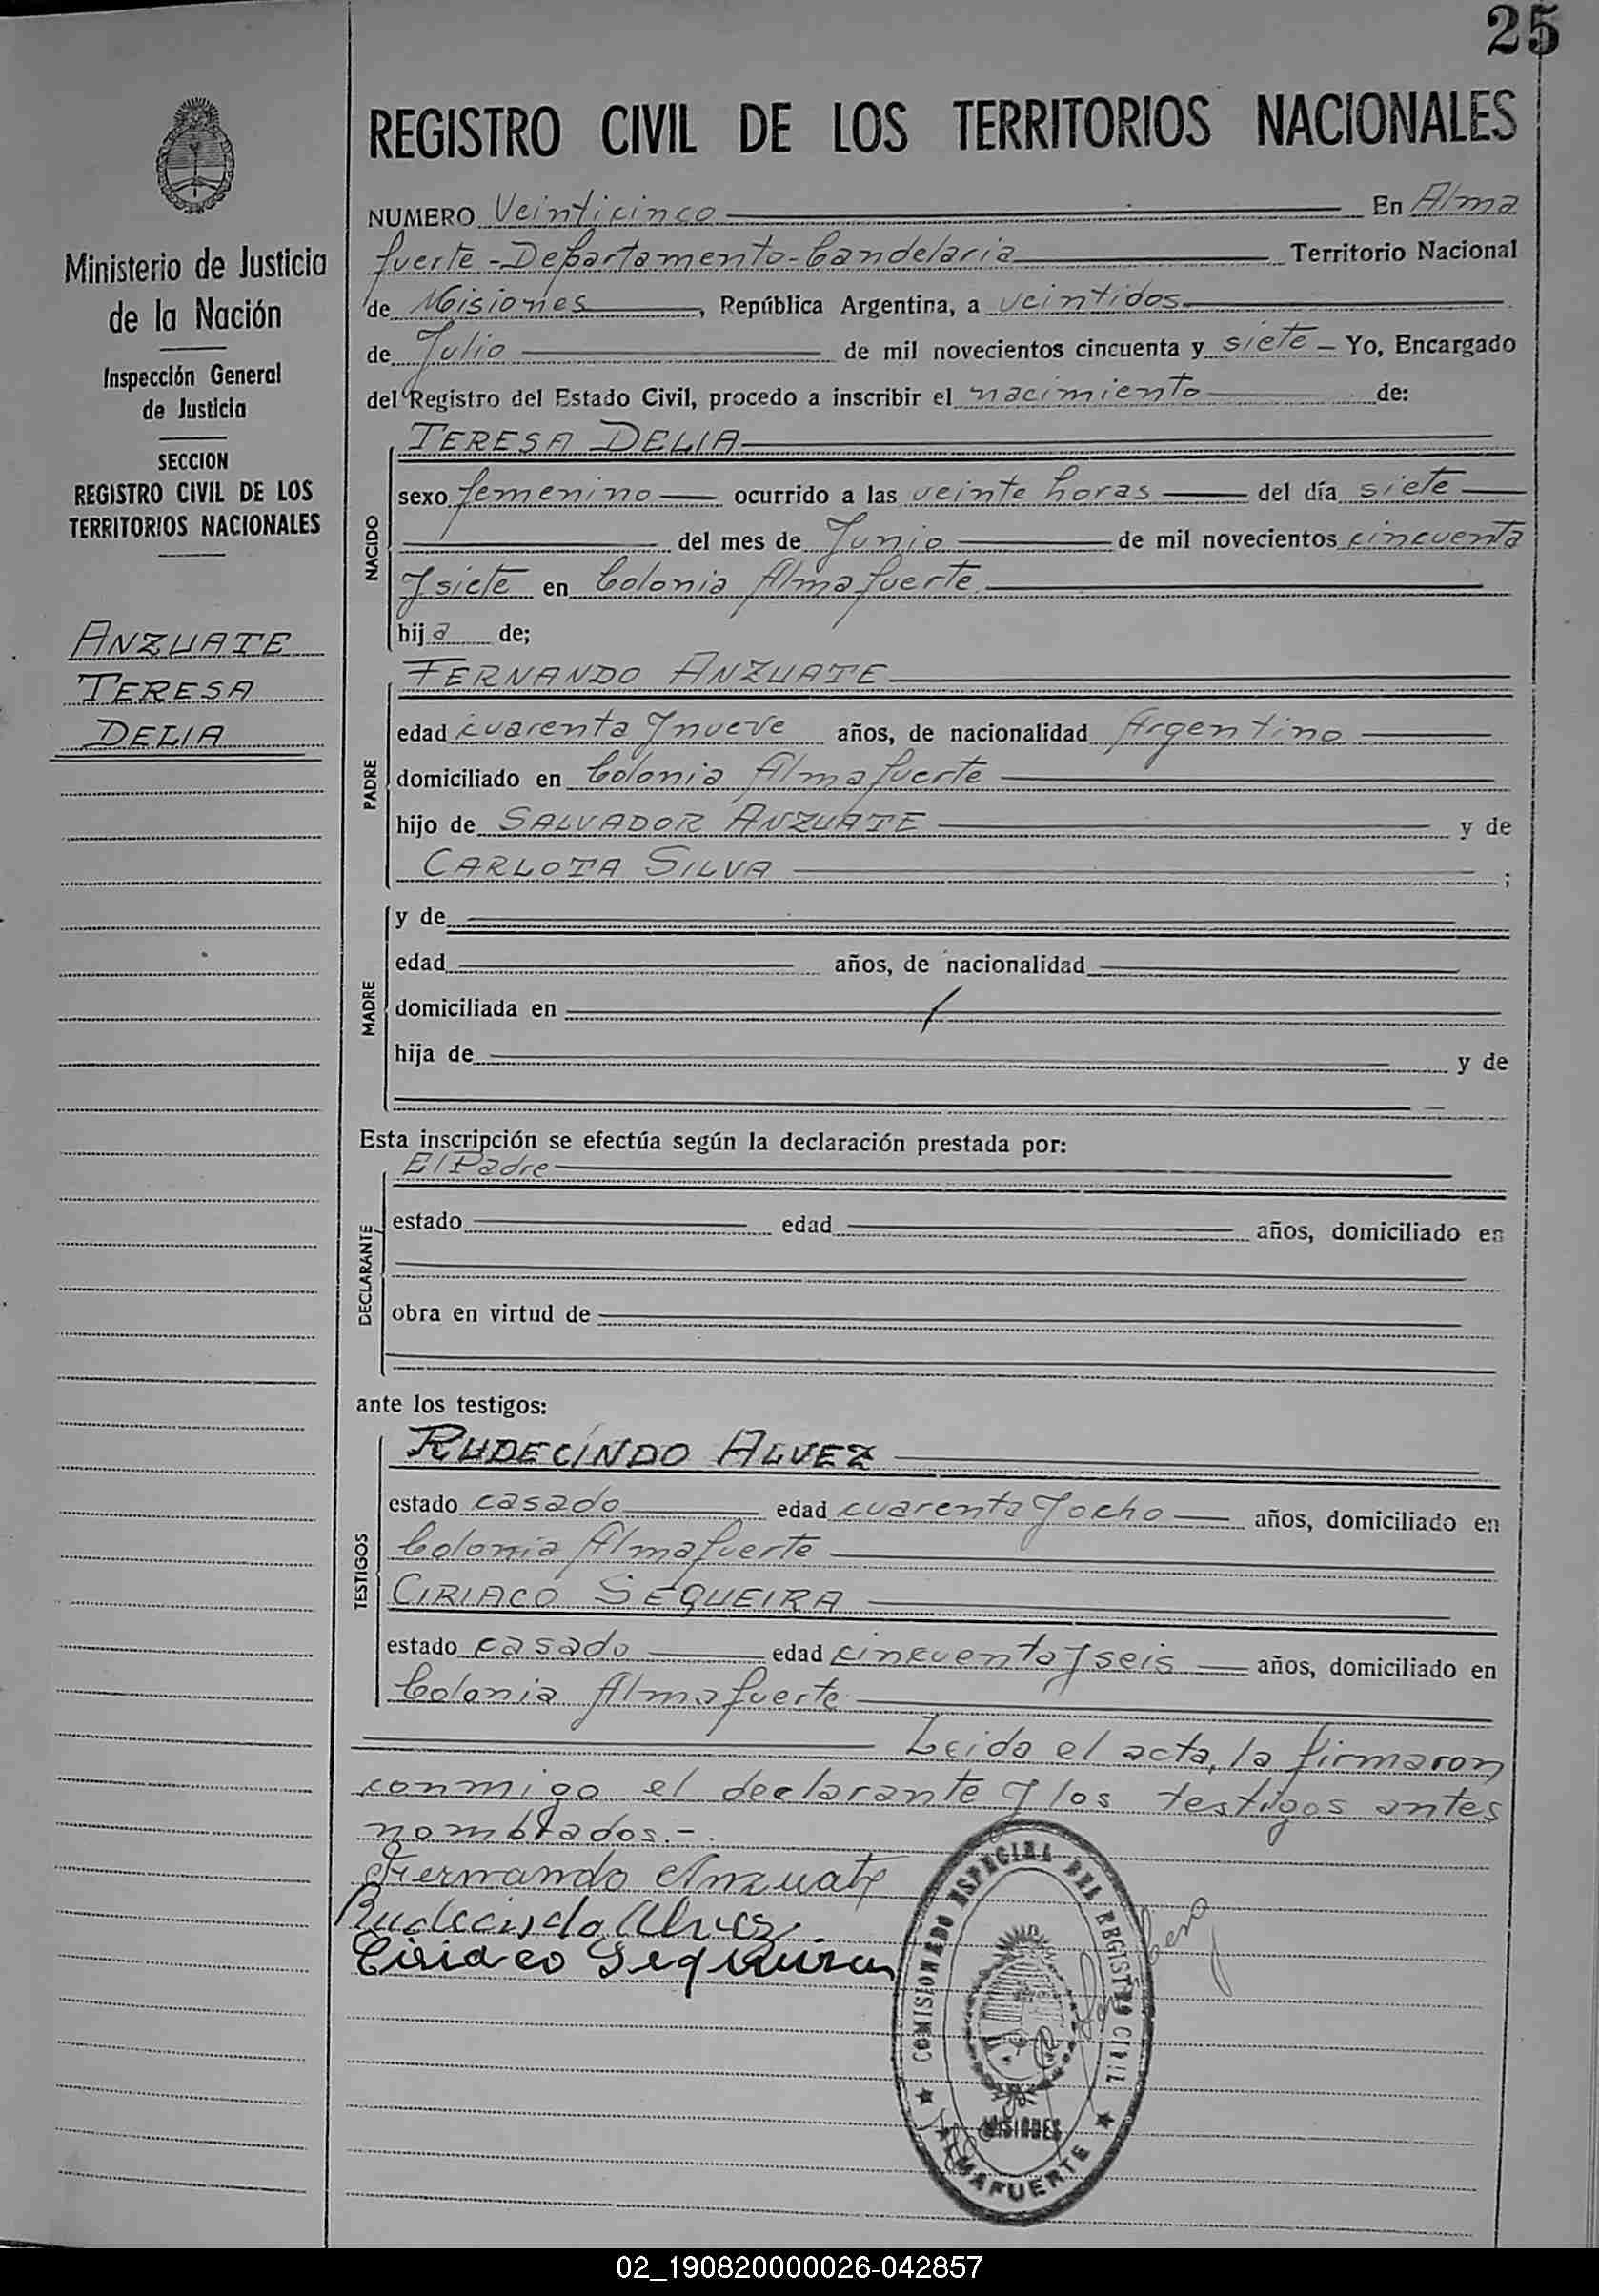 25
REGISTRO CIVIL DE LOS TERRITORIOS NACIONALES
Ministerio de Justicia
de la Nación
Inspección General
de Justicia
SECCION
REGISTRO CIVIL DE LOS
TERRITORIOS NACIONALES
ANZUATE
TERESA
DELIA
NUMERO Veinticinco En Alma
fuerte - Departamento - Candelaria Territorio Nacional
de Misiones, República Argentina, a veintidos
de Julio de mil novecientos cincuenta y siete - Yo, Encargado
del Registro del Estado Civil, procedo a inscribir el nacimiento de:
NACIDO
TERESA DELIA
sexo femenino ocurrido a las veinte horas del día siete
del mes de Junio de mil novecientos cincuenta
y siete en Colonia Almafuerte
hija de;
PADRE
FERNANDO ANZUATE
edad cuarenta y nueve años, de nacionalidad Argentino
domiciliado en Colonia Almafuerte
hijo de SALVADOR ANZUATE y de
CARLOTA SILVA ;
MADRE
y de
edad años, de nacionalidad
domiciliada en
hija de y de
Esta inscripción se efectúa según la declaración prestada por:
DECLARANTE
El Padre
estado edad años, domiciliado en
obra en virtud de
ante los testigos:
TESTIGOS
RUDECINDO ALVEZ
estado casado edad cuarenta y ocho años, domiciliado en
Colonia Almafuerte
CIRIACO SEQUEIRA
estado casado edad cincuenta y seis años, domiciliado en
Colonia Almafuerte
Leida el acta, la firmaron
conmigo el declarante y los testigos antes
nombrados.-
Fernando Anzuate
Rudecindo Alvez
Ciriaco Sequeira
COMISIONADO ESPECIAL DEL REGISTRO CIVIL
MISIONES
ALMAFUERTE
02_190820000026-042857